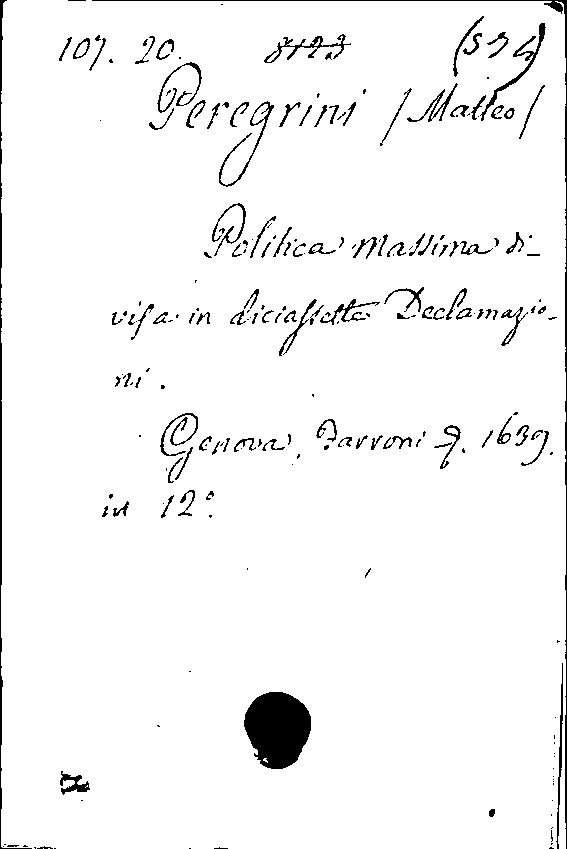 107. 20. 8123 (534)
Peregrini /Matteo/
Politica massima di-
visa in diciassette Declamazio-
ni.
Genova, Farroni 1639.
in 12°.